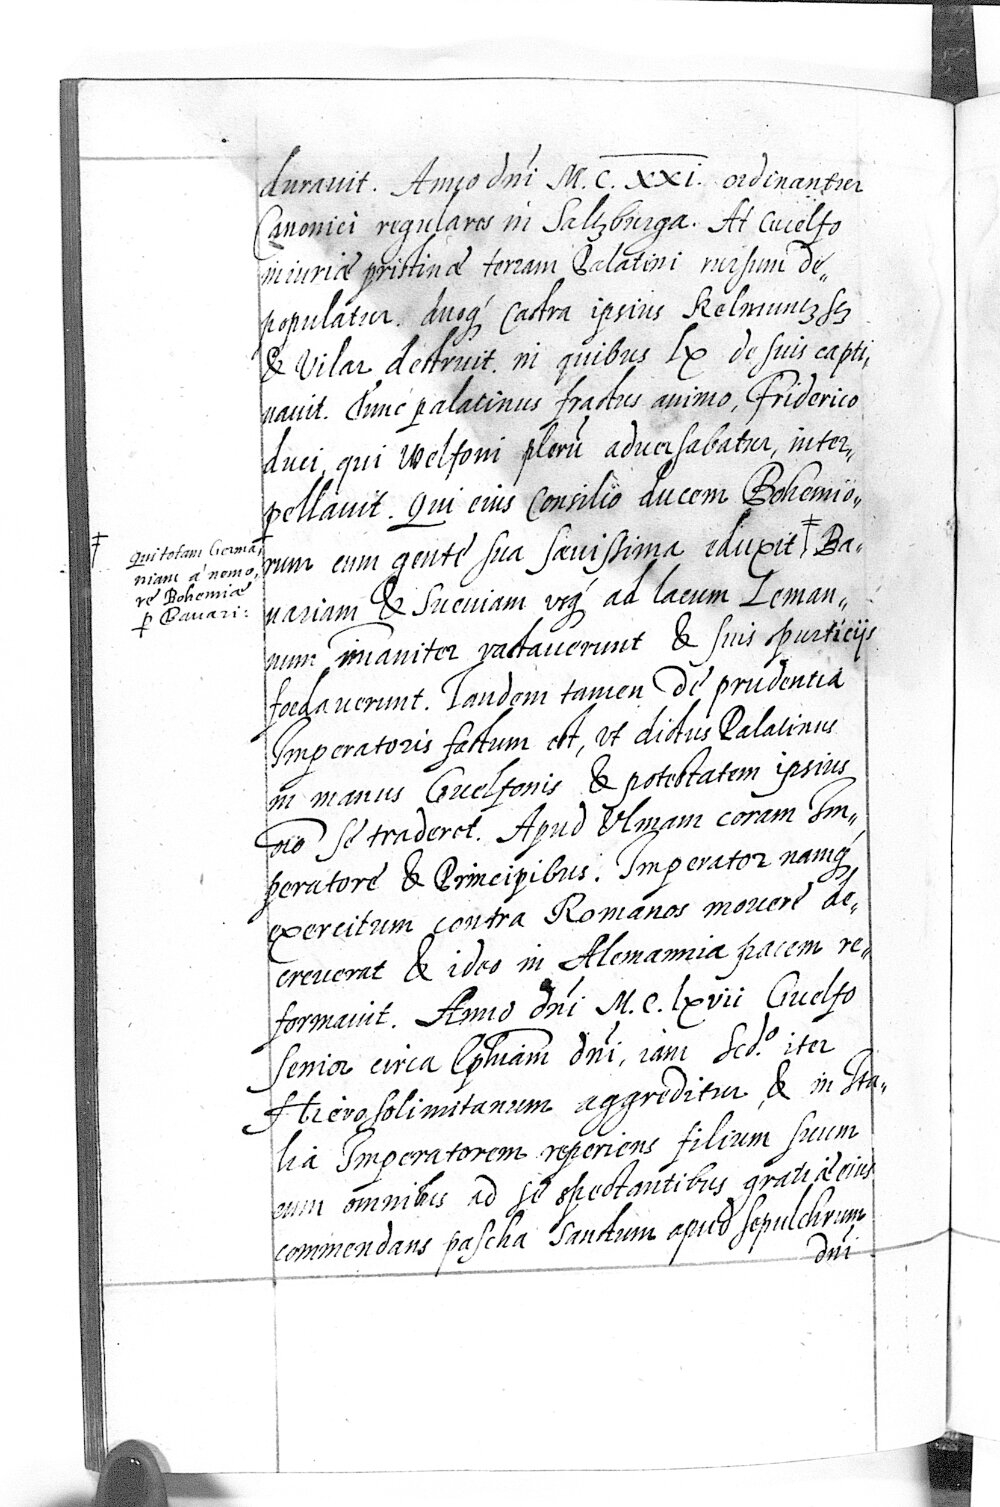 durauit. Anno dni M. C. XXI. ordinantur
Canonici regulares in Saltzburga. At Guelfo
iniuriæ pristinæ terram Palatini rursum de„
populatur. duoq́ Castra ipsius Kelmuntz
& Vilar destruit. in quibus lx de suis capti„
uauit. Tunc palatinus fractus animo, Friderico
duci, qui Welfoni plerū aduersabatur, inter„
pellauit. Qui eius Consilio ducem Bohemio„
rum cum gente sua sæuissima eduxit ‡ Ba„
uariam & Sueuiam vsq́ ad lacum Leman„
num inmaniter vastauerunt & suis spurticijs
foedauerunt. Tandem tamen de prudentia
Imperatoris factum est, vt dictus Palatinus
in manus Guelfonis & potestatem ipsius
se traderet. Apud Vlmam coram Im„
peratore & Principibus. Imperator namq́
exercitum contra Romanos mouere de„
creuerat & ideo in Alemannia pacem re„
formauit. Anno dni M. C. lxvii Guelfo
senior circa Ephiam dni, iam Scd.o iter
Hierosolimitanum aggreditur & in Ita„
lia Imperatorem reperiens filium suum
cum omnibus ad se spectantibus gratiæ eius
commendans pascha Sanctum apud sepulchrum
dni
‡ qui totam Germa
niam a nemo„
re Bohemiæ
p Bauari: